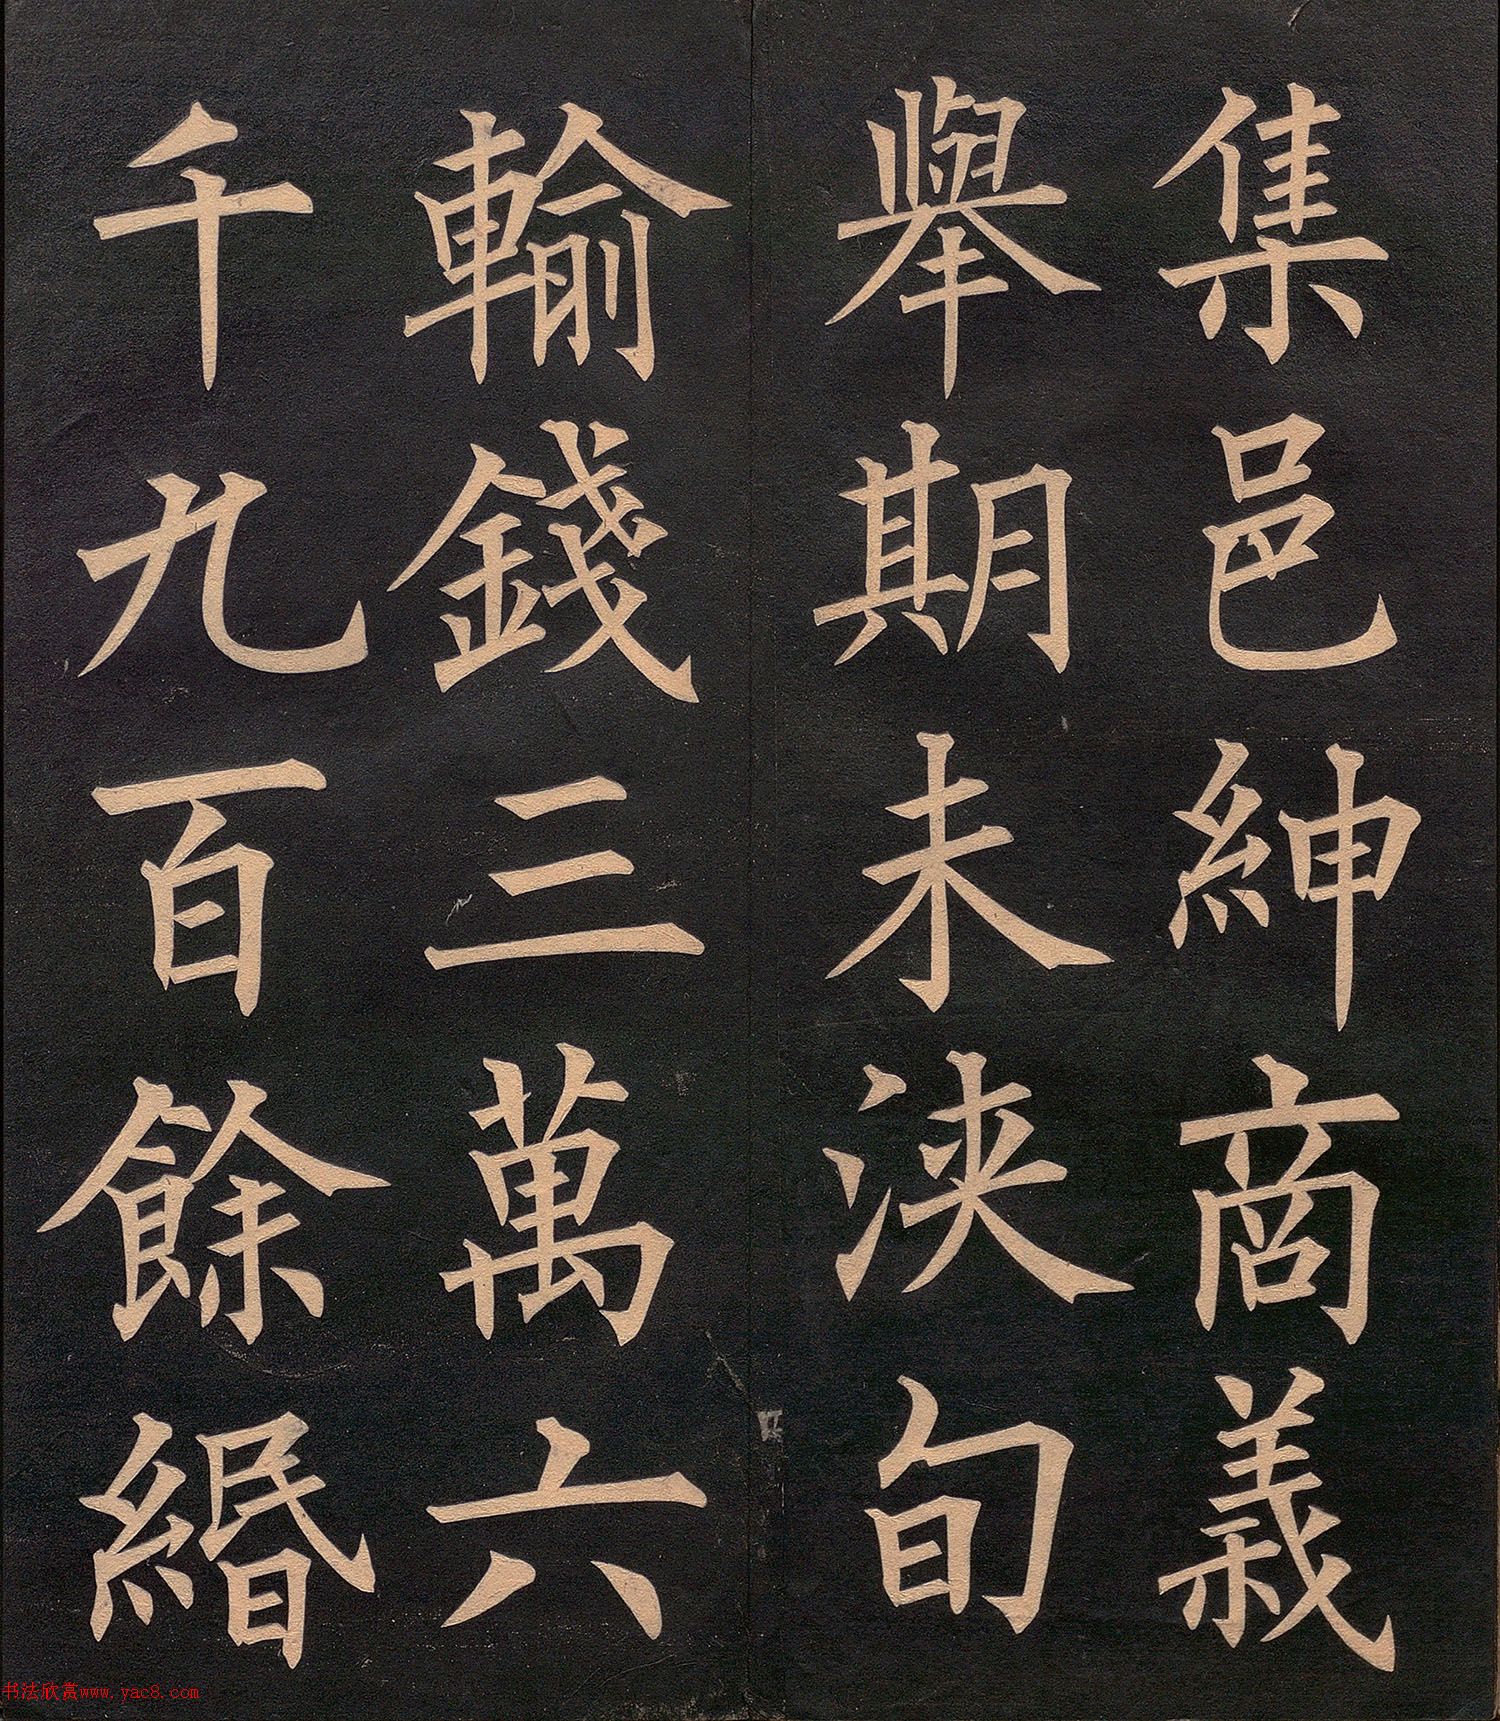 集邑紳商義
舉期未浹旬
輸錢三萬六
千九百餘緡
书法欣赏www.yac8.com